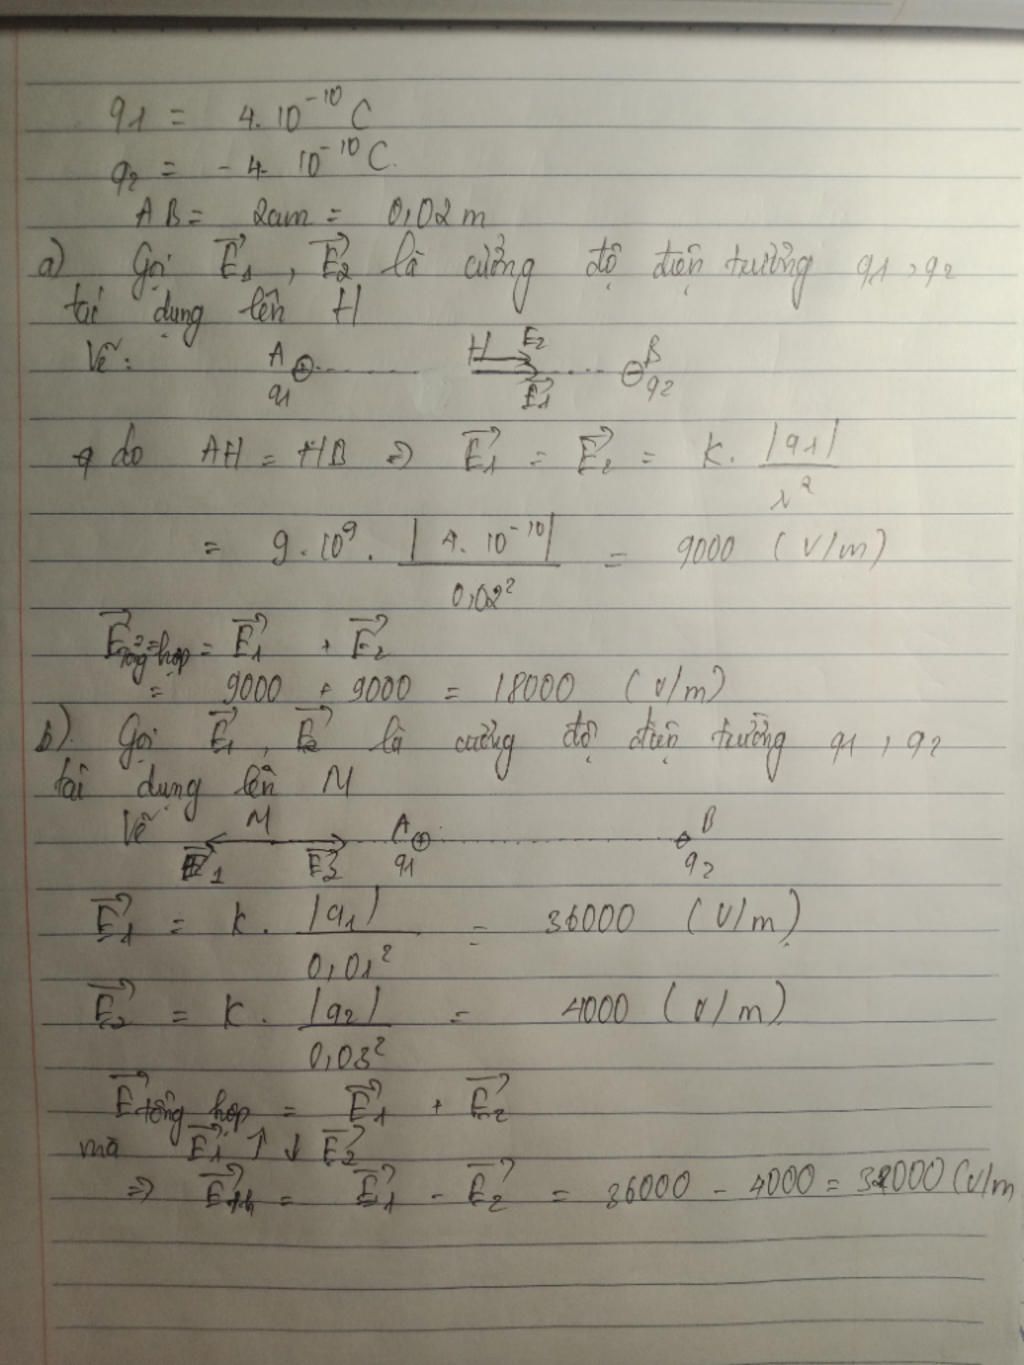 q1 = 4.10⁻¹⁰ C
q2 = -4. 10⁻¹⁰ C.
AB = 2cm = 0,02 m
a) Gọi E⃗1 , E⃗2 là cường độ điện trường q1 , q2
tác dụng lên H
Vẽ: A q1 H E2 E⃗1 B q2
do AH = HB ⇒ E⃗1 = E⃗2 = k. |q1| / r²
= 9.10⁹ . |4. 10⁻¹⁰| / 0,02² = 9000 (V/m)
E⃗tổng hợp = E⃗1 + E⃗2
= 9000 + 9000 = 18000 (V/m)
b) Gọi E⃗1 , E⃗2 là cường độ điện trường q1 , q2
tác dụng lên M
Vẽ M A B
E⃗1 E⃗2 q1 q2
E⃗1 = k. |q1| / 0,01² = 36000 (V/m)
E⃗2 = k. |q2| / 0,03² = 4000 (V/m)
E⃗tổng hợp = E⃗1 + E⃗2
mà E⃗1 ↑↓ E⃗2
⇒ E⃗th = E⃗1 - E⃗2 = 36000 - 4000 = 32000 (V/m